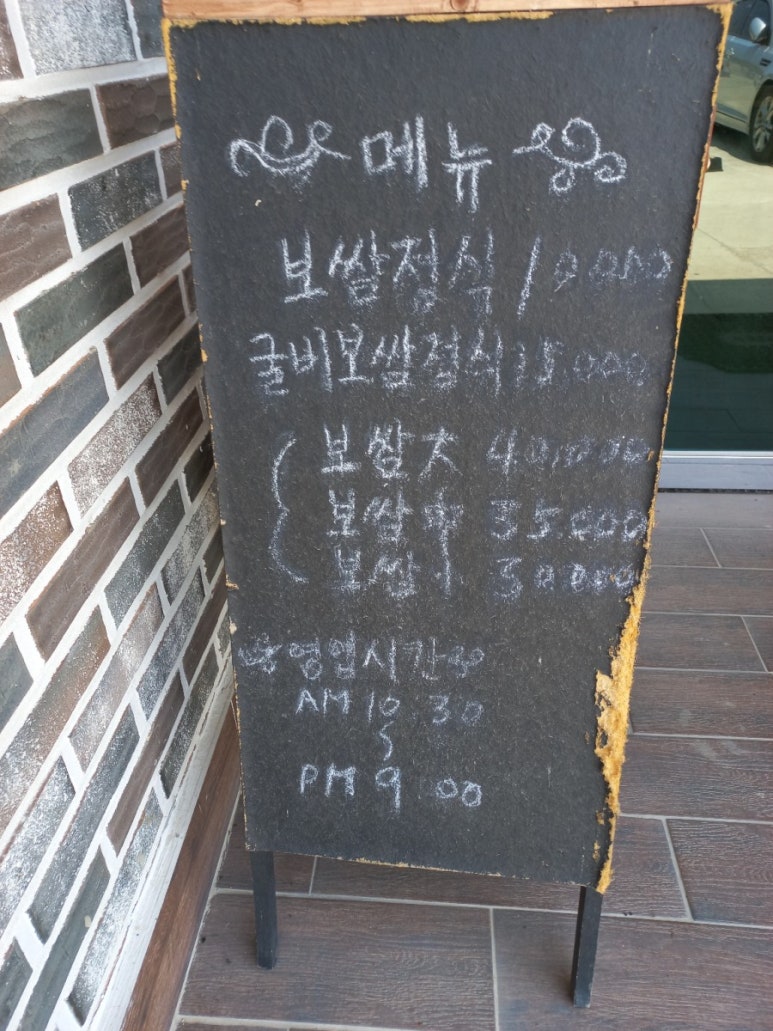 메뉴
보쌈정식 10000
굴비보쌈정식 15.000
보쌈 大 40.000
보쌈 中 35.000
보쌈 小 30.000
영업시간
AM 10 30
~
PM 9 00